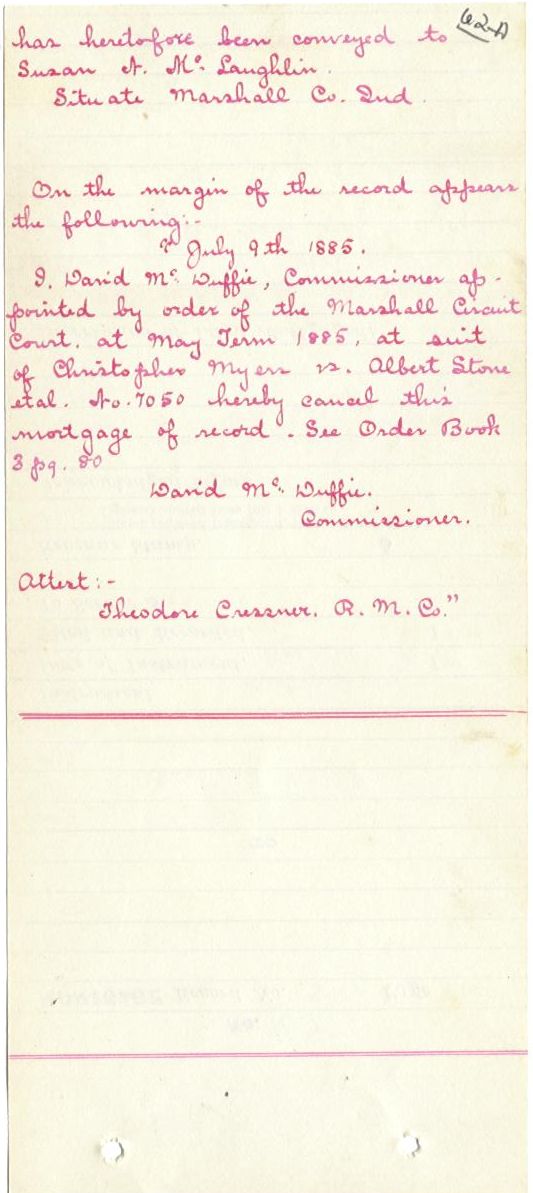 62-A
has heretofore been conveyed to
Susan N. Mc. Laughlin.
Situate Marshall Co. Ind.
On the margin of the record appears
the following:-
" July 9th 1885.
I. David Mc. Duffie, Commissioner ap-
pointed by order of the Marshall Circuit
Court. at May Term 1885, at suit
of Christopher Myers vs. Albert Stone
etal. No. 7050 hereby cancel this
mortgage of record. See Order Book
3 pg. 80
David Mc. Duffie.
Commissioner.
Attest:-
Theodore Cressner. R. M. Co."